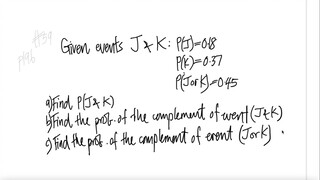 Given events J & K: P(J)=0.18
P(K)=0.37
P(J or K)=0.45
a) Find P(J & K)
b) Find the prob. of the complement of event (J & K)
c) Find the prob. of the complement of event (J or K)